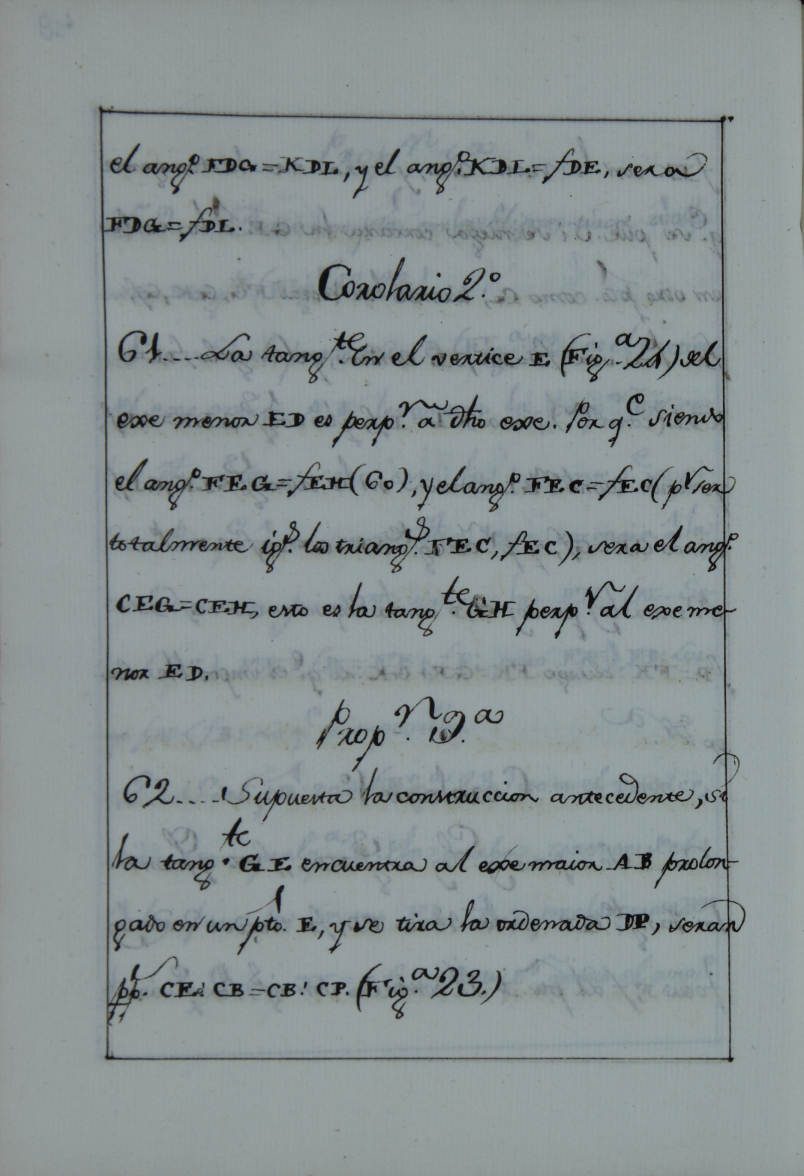 el ang.º FDG=KDL, y el ang.º KDL=fDE, sera
FDG=fDL.
Corolario 2.º
61....La tang.te en el vertice E (Fig.a 24) del
exe menor ED es perp.r a dho exe. Por q.e siendo
el ang.º FEG=fEH(60), y el ang.º FEC=fEC(p.r ser
totalmente ig.s los triang.s FEC, fEC), sera el ang.º
CEG=CEH, esto es la tang.te GH perp.r al exe me-
nor ED.
Prop.n 9.a
62....Supuesta la construccion antecedente, si
la tang.te GE encuentra al exe maior AB prolon-
gado en un pto. E, y se tira la ordenada DP, seran
pp.s CE:CB=CB:CP. (Fig.a 23.)